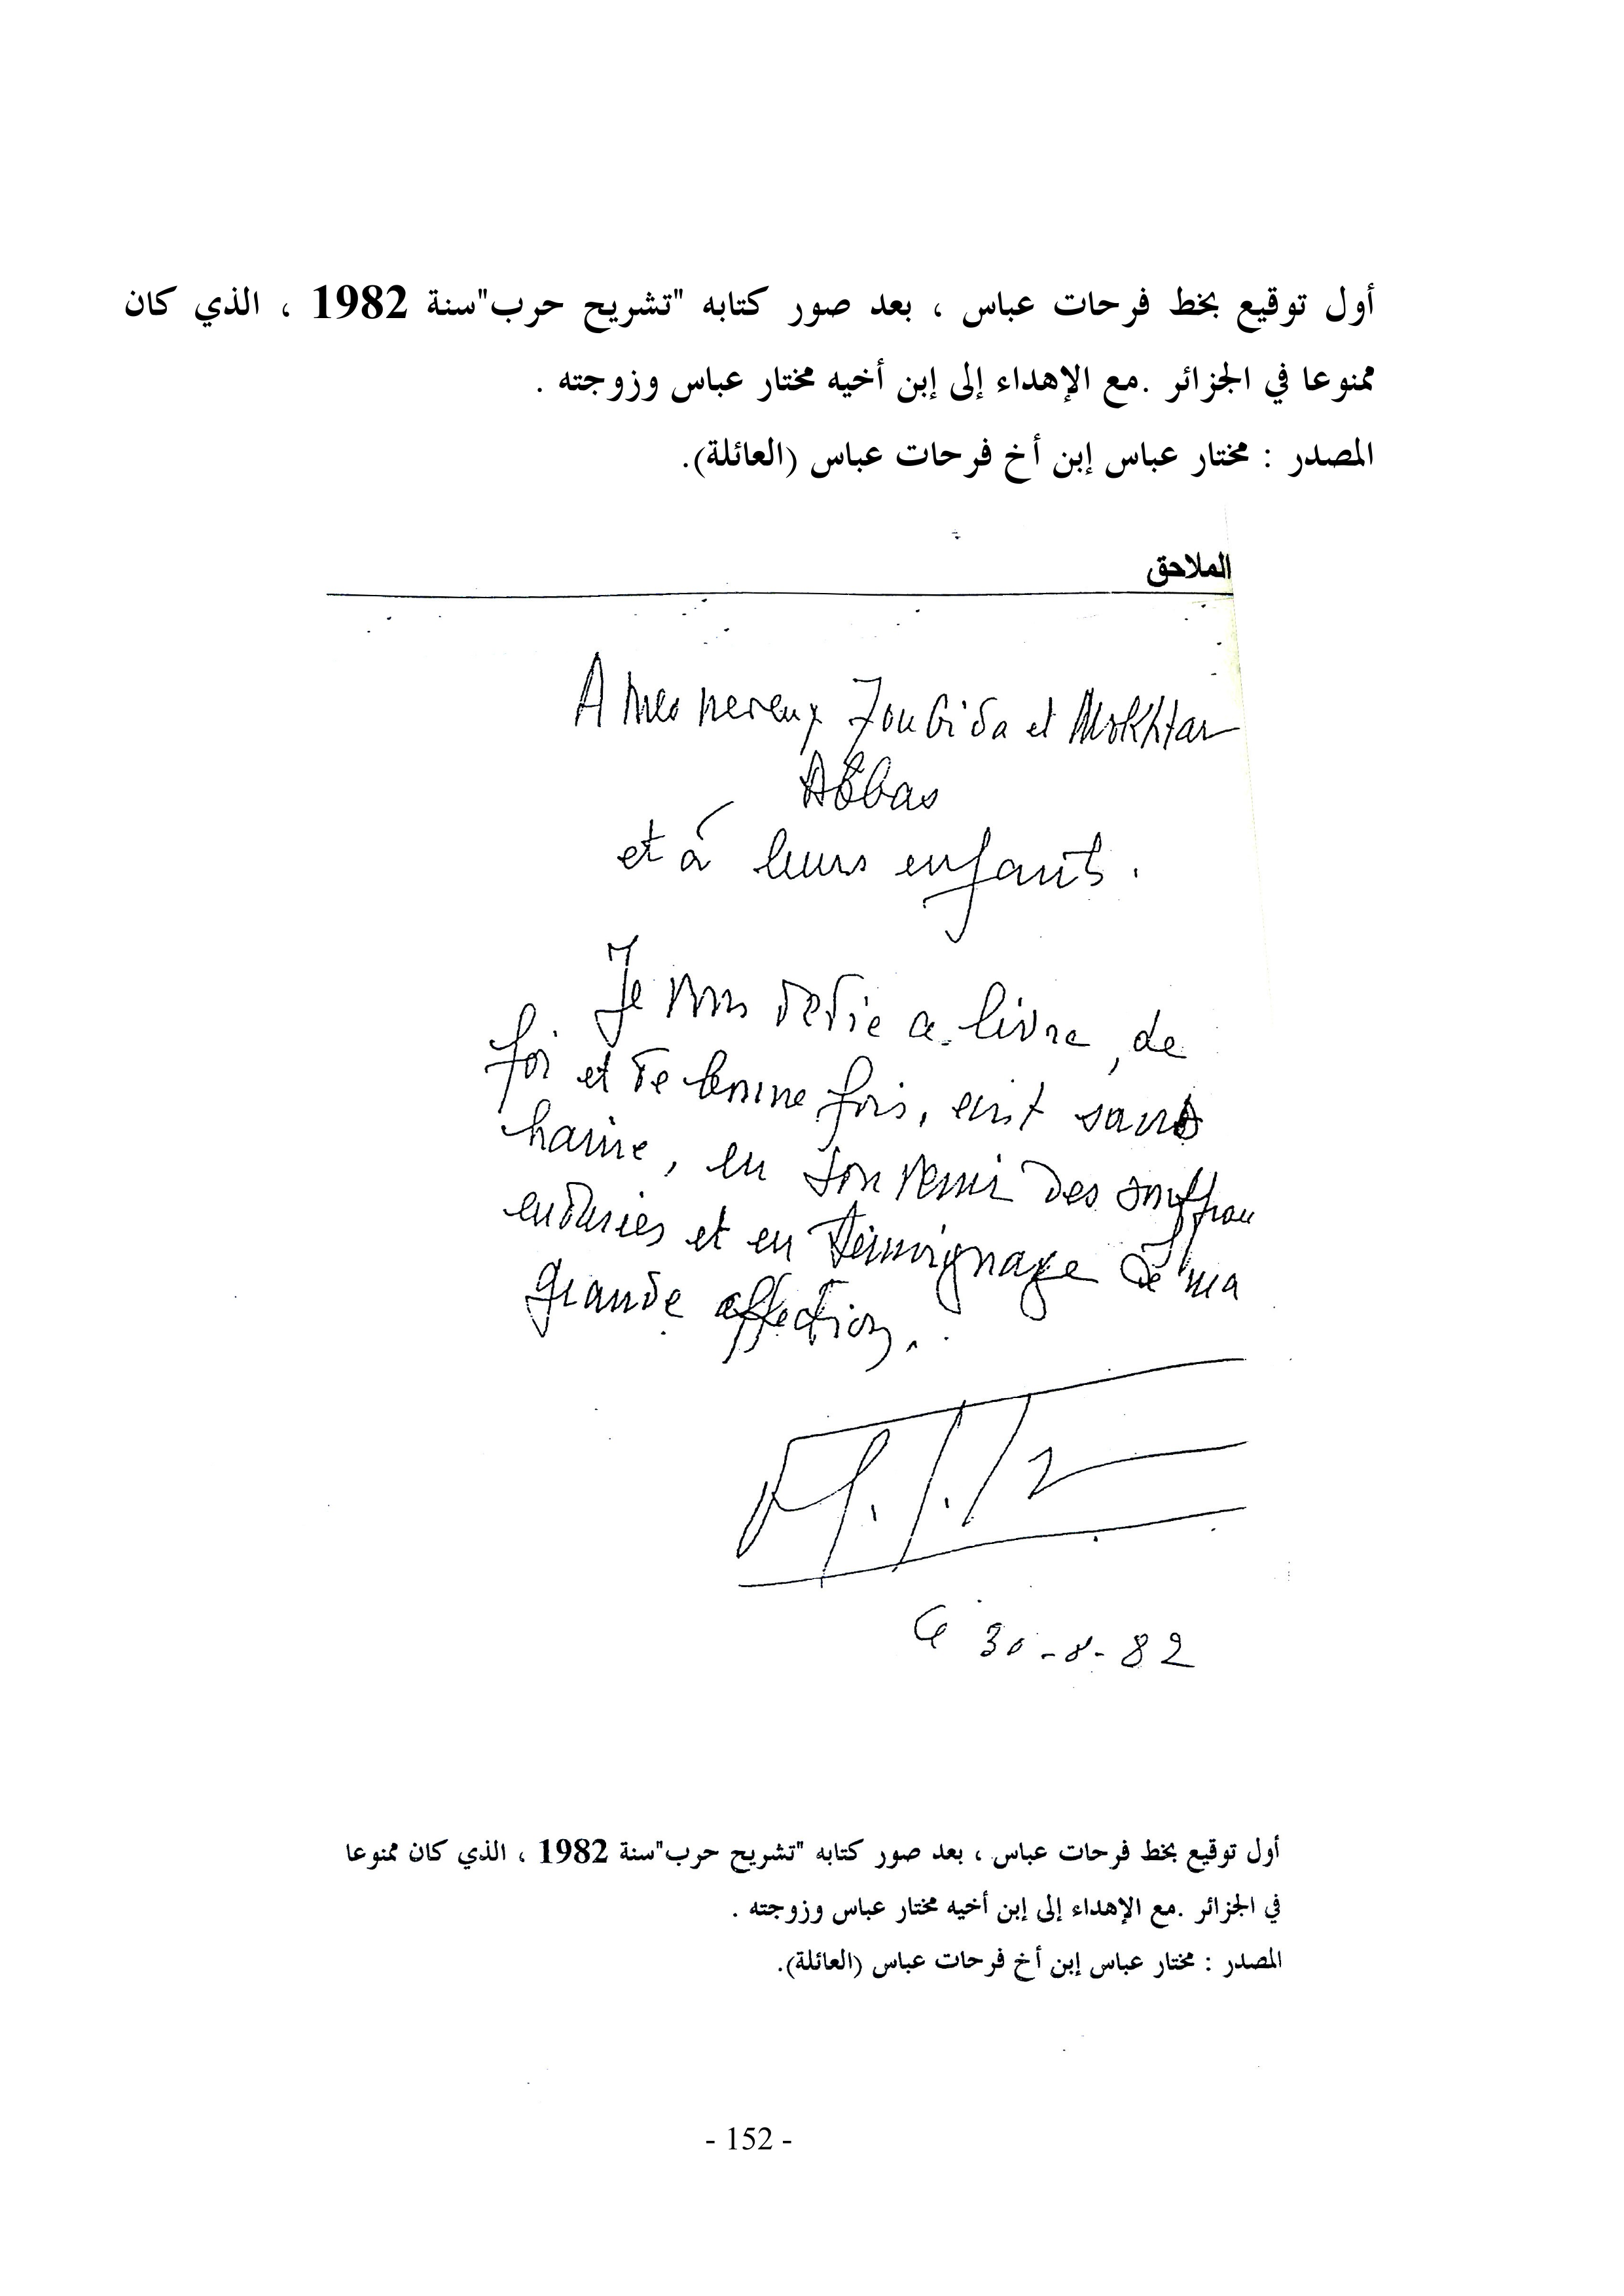 أول توقيع بخط فرحات عباس ، بعد صور كتابه "تشريح حرب"سنة 1982 ، الذي كان
ممنوعا في الجزائر .مع الإهداء إلى إبن أخيه مختار عباس وزوجته .
المصدر : مختار عباس إبن أخ فرحات عباس (العائلة).
الملاحق
A mes neveux Zoubida et Mokhtar
Abbas
et à leurs enfants.
Je vous dédie ce livre, de
foi et de bonne fois, écrit sans
haine, en souvenir des souffran
endurées et en témoignage de ma
grande affection.
Le 30-8-82
أول توقيع بخط فرحات عباس ، بعد صور كتابه "تشريح حرب"سنة 1982 ، الذي كان ممنوعا
في الجزائر .مع الإهداء إلى إبن أخيه مختار عباس وزوجته .
المصدر : مختار عباس إبن أخ فرحات عباس (العائلة).
- 152 -